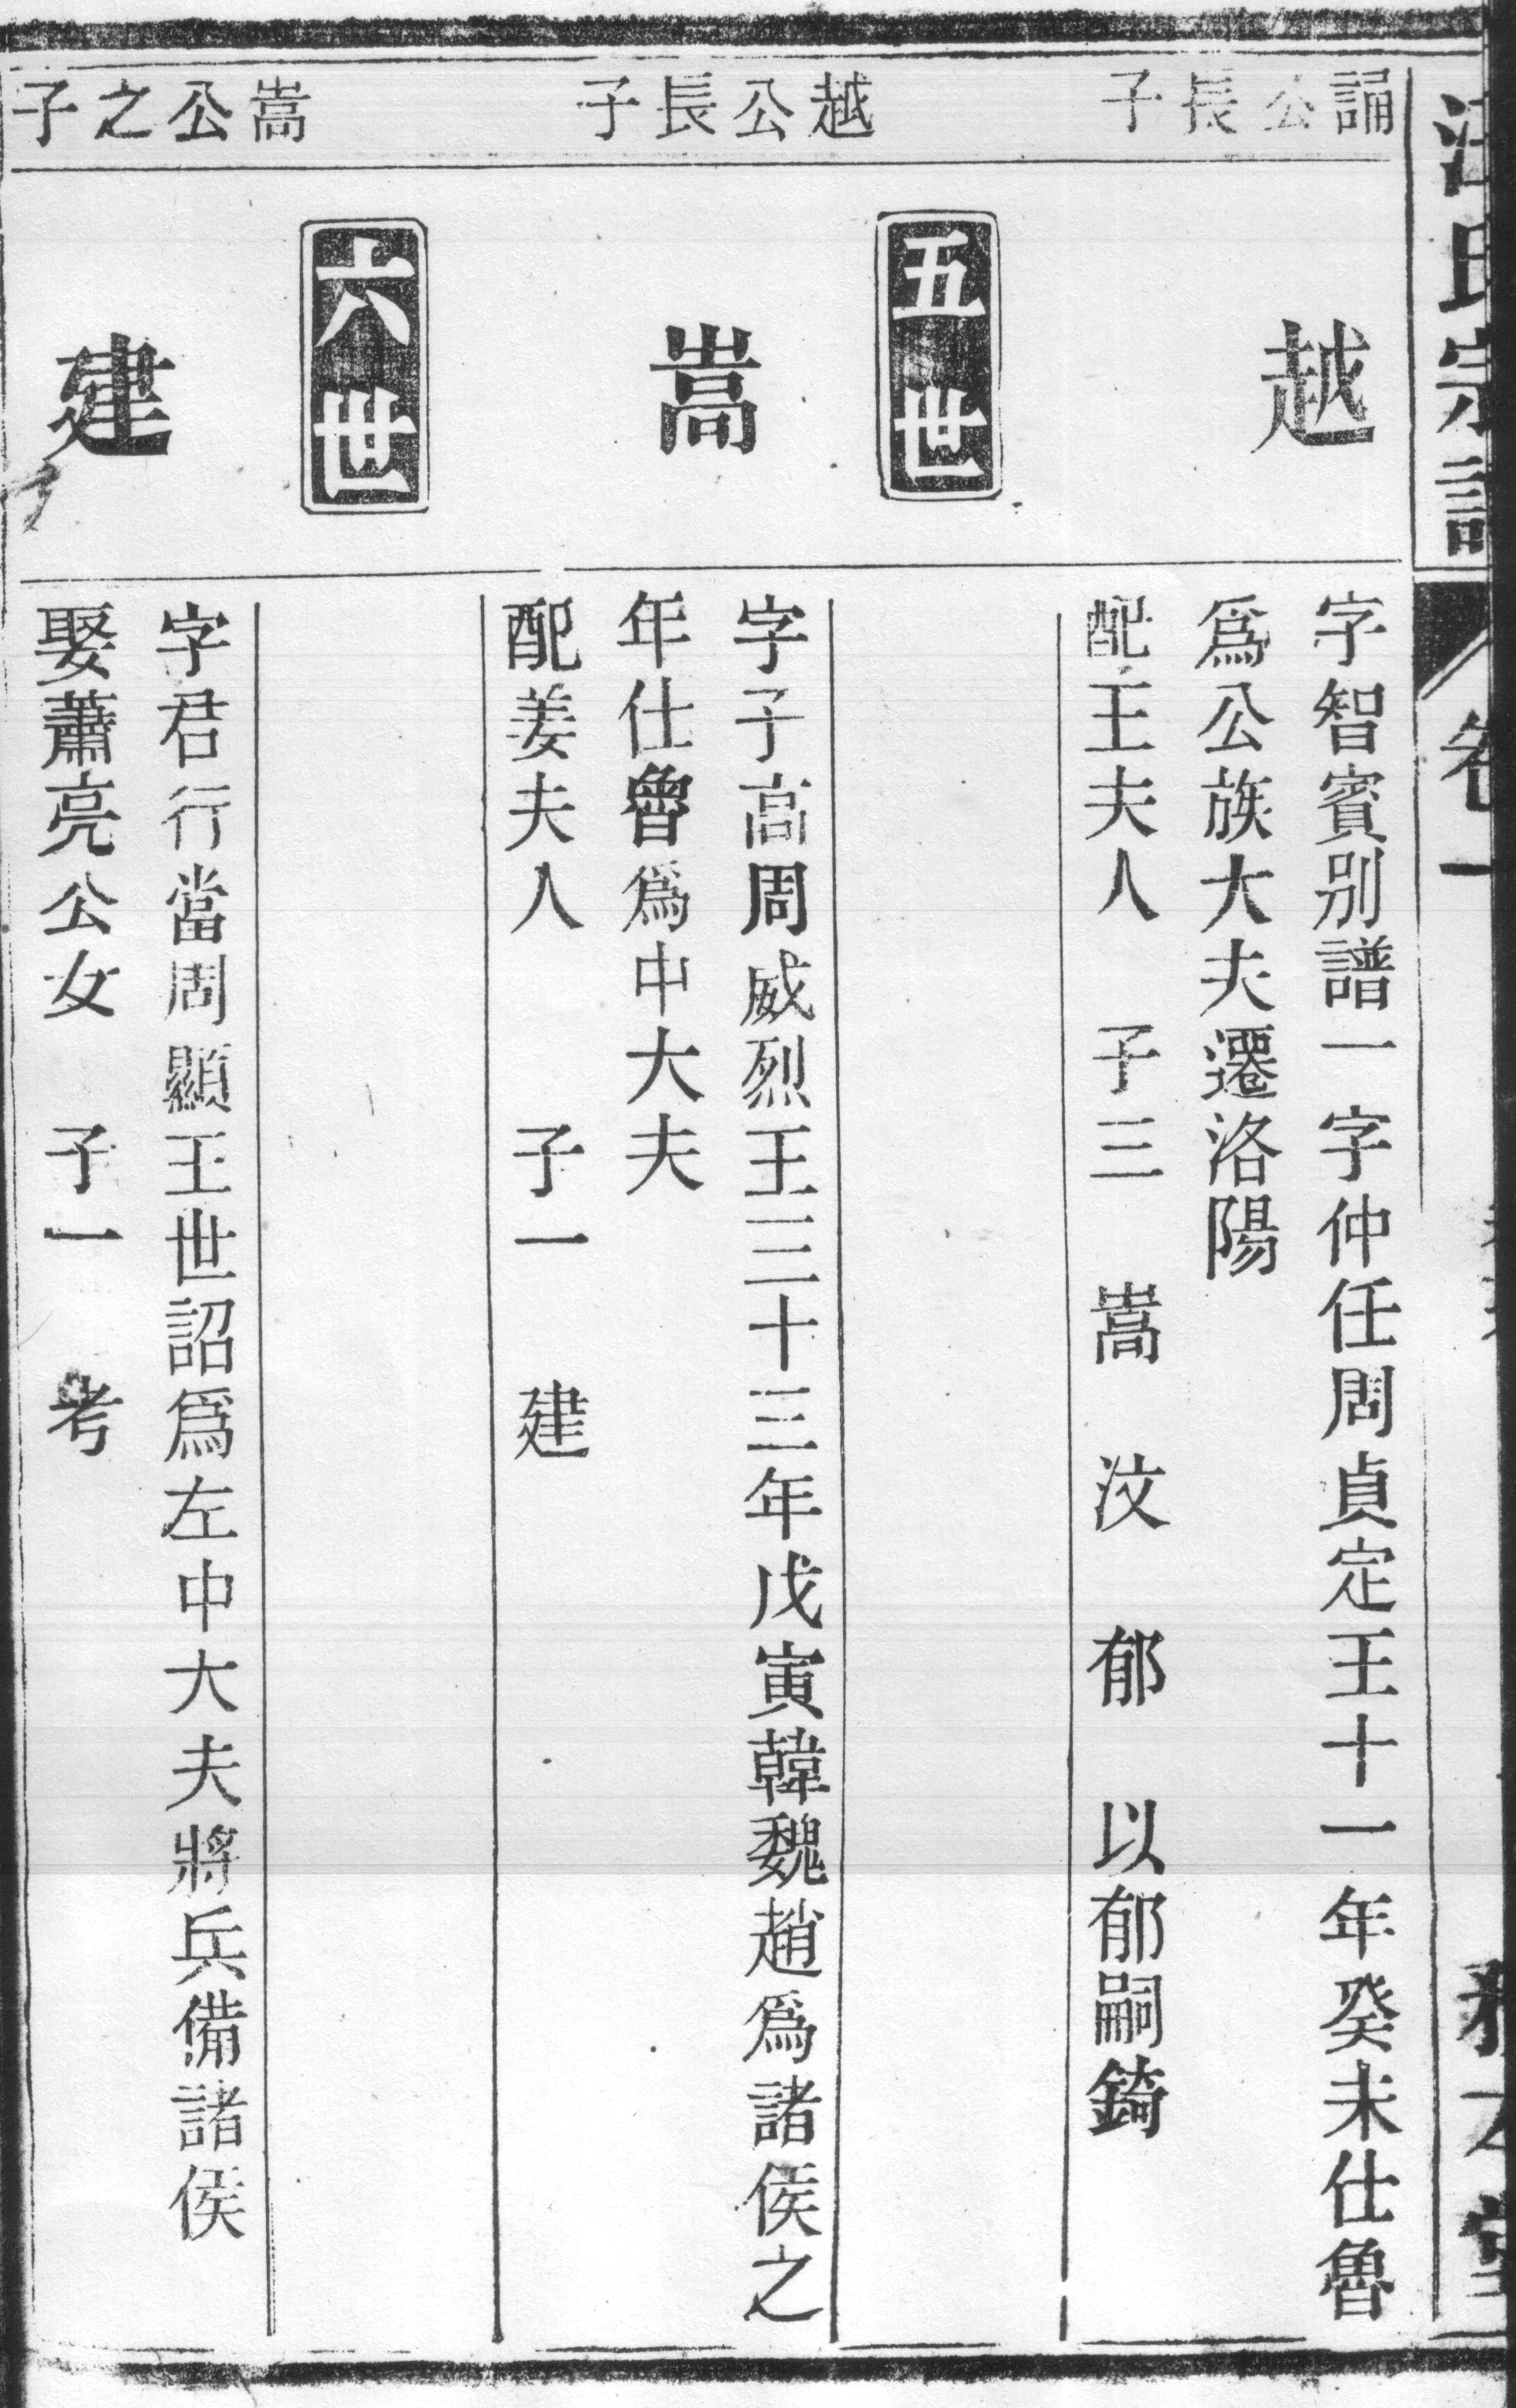 汪氏宗譜
卷一
誦公長子
越
字智賓别譜一字仲任周貞定王十一年癸未仕魯
爲公族大夫遷洛陽
配王夫人 子三 嵩 汶 郁 以郁嗣錡
五世
越公長子
嵩
字子高周威烈王二十三年戊寅韓魏趙爲諸侯之
年仕魯爲中大夫
配姜夫人 子一 建
六世
嵩公之子
建
字君行當周顯王世詔爲左中大夫將兵備諸侯
娶蕭亮公女 子一 考